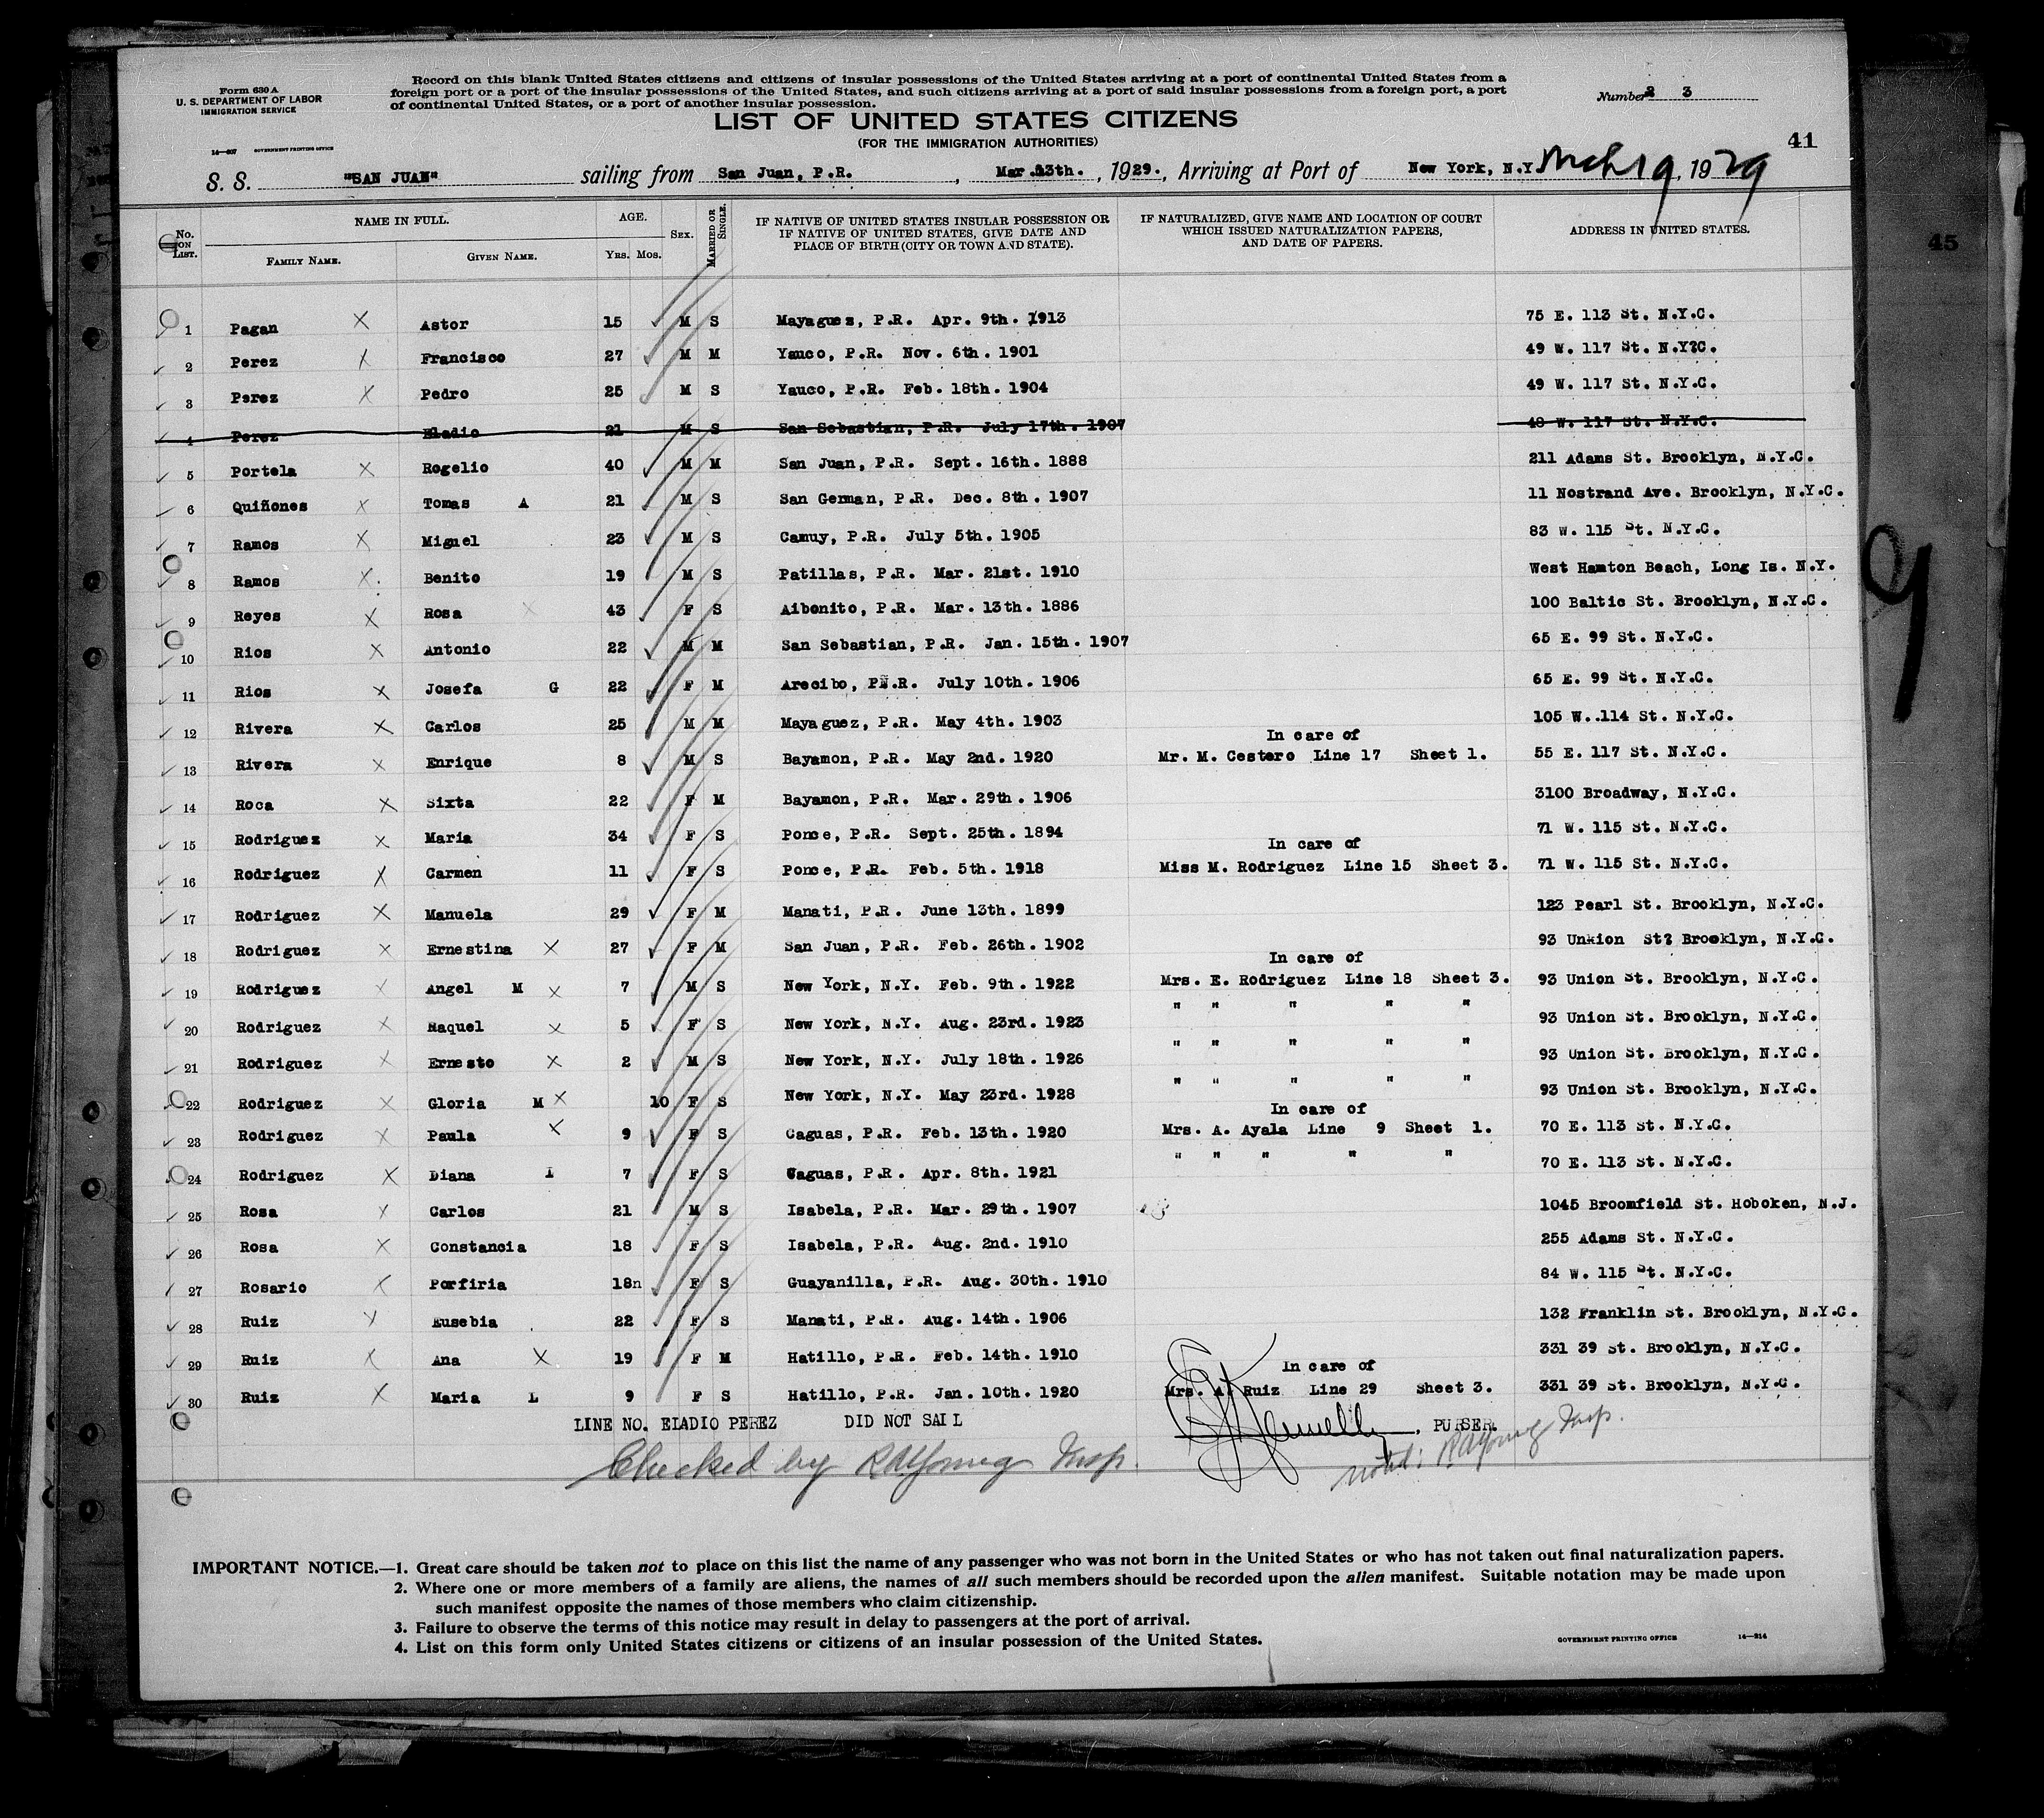 Form 630 A
U. S. DEPARTMENT OF LABOR
IMMIGRATION SERVICE
14—607 GOVERNMENT PRINTING OFFICE
Record on this blank United States citizens and citizens of insular possessions of the United States arriving at a port of continental United States from a
foreign port or a port of the insular possessions of the United States, and such citizens arriving at a port of said insular possessions from a foreign port, a port
of continental United States, or a port of another insular possession.
Number 3
LIST OF UNITED STATES CITIZENS
(FOR THE IMMIGRATION AUTHORITIES)
41
S. S. "SAN JUAN" sailing from San Juan, P.R. , Mar.13th. , 1929. , Arriving at Port of New York, N.Y. Mch 19, 1929
No. ON LIST. NAME IN FULL. FAMILY NAME. GIVEN NAME. AGE. YRS. MOS. SEX. MARRIED OR SINGLE. IF NATIVE OF UNITED STATES INSULAR POSSESSION OR IF NATIVE OF UNITED STATES, GIVE DATE AND PLACE OF BIRTH (CITY OR TOWN AND STATE). IF NATURALIZED, GIVE NAME AND LOCATION OF COURT WHICH ISSUED NATURALIZATION PAPERS, AND DATE OF PAPERS. ADDRESS IN UNITED STATES.
45
1 Pagan X Astor 15 M S Mayaguez, P.R. Apr. 9th. 1913 75 E. 113 St. N.Y.C.
2 Perez X Francisco 27 M M Yauco, P.R. Nov. 6th. 1901 49 W. 117 St. N.Y?C.
3 Perez X Pedro 25 M S Yauco, P.R. Feb. 18th. 1904 49 W. 117 St. N.Y.C.
4 Perez Eladio 21 M S San Sebastian, P.R. July 17th. 1907 48 W. 117 St. N.Y.C.
5 Portela X Rogelio 40 M M San Juan, P.R. Sept. 16th. 1888 211 Adams St. Brooklyn, N.Y.C.
6 Quiñones X Tomas A 21 M S San German, P.R. Dec. 8th. 1907 11 Nostrand Ave. Brooklyn, N.Y.C.
7 Ramos X Miguel 23 M S Camuy, P.R. July 5th. 1905 83 W. 115 St. N.Y.C.
8 Ramos X Benito 19 M S Patillas, P.R. Mar. 21st. 1910 West Hamton Beach, Long Is. N.Y.
9 Reyes X Rosa 43 F S Aibonito, P.R. Mar. 13th. 1886 100 Baltic St. Brooklyn, N.Y.C.
10 Rios X Antonio 22 M M San Sebastian, P.R. Jan. 15th. 1907 65 E. 99 St. N.Y.C.
11 Rios X Josefa G 22 F M Arecibo, P.R. July 10th. 1906 65 E. 99 St. N.Y.C.
12 Rivera X Carlos 25 M M Mayaguez, P.R. May 4th. 1903 105 W..114 St. N.Y.C.
In care of
13 Rivera X Enrique 8 M S Bayamon, P.R. May 2nd. 1920 Mr. M. Cestero Line 17 Sheet 1. 55 E. 117 St. N.Y.C.
14 Roca X Sixta 22 F M Bayamon, P.R. Mar. 29th. 1906 3100 Broadway, N.Y.C.
15 Rodriguez X Maria 34 F S Ponce, P.R. Sept. 25th. 1894 71 W. 115 St. N.Y.C.
In care of
16 Rodriguez X Carmen 11 F S Ponce, P.R. Feb. 5th. 1918 Miss M. Rodriguez Line 15 Sheet 3. 71 W. 115 St. N.Y.C.
17 Rodriguez X Manuela 29 F M Manati, P.R. June 13th. 1899 123 Pearl St. Brooklyn, N.Y.C.
18 Rodriguez X Ernestina X 27 F M San Juan, P.R. Feb. 26th. 1902 93 Unkion St? Brooklyn, N.Y.C.
In care of
19 Rodriguez X Angel M X 7 M S New York, N.Y. Feb. 9th. 1922 Mrs. E. Rodriguez Line 18 Sheet 3. 93 Union St. Brooklyn, N.Y.C.
20 Rodriguez X Raquel X 5 F S New York, N.Y. Aug. 23rd. 1923 " " " " " 93 Union St. Brooklyn, N.Y.C.
21 Rodriguez X Ernesto X 2 M S New York, N.Y. July 18th. 1926 " " " " " 93 Union St. Brooklyn, N.Y.C.
22 Rodriguez X Gloria M X 10 F S New York, N.Y. May 23rd. 1928 " " " " " 93 Union St. Brooklyn, N.Y.C.
In care of
23 Rodriguez X Paula X 9 F S Caguas, P.R. Feb. 13th. 1920 Mrs. A. Ayala Line 9 Sheet 1. 70 E. 113 St. N.Y.C.
24 Rodriguez X Diana I 7 F S Caguas, P.R. Apr. 8th. 1921 " " " " " 70 E. 113 St. N.Y.C.
25 Rosa X Carlos 21 M S Isabela, P.R. Mar. 29th. 1907 1045 Broomfield St. Hoboken, N.J.
26 Rosa X Constancia 18 F S Isabela, P.R. Aug. 2nd. 1910 255 Adams St. N.Y.C.
27 Rosario X Porfiria 18n F S Guayanilla, P.R. Aug. 30th. 1910 84 W. 115 St. N.Y.C.
28 Ruiz X Eusebia 22 F S Manati, P.R. Aug. 14th. 1906 132 Franklin St. Brooklyn, N.Y.C.
29 Ruiz X Ana X 19 F M Hatillo, P.R. Feb. 14th. 1910 331 39 St. Brooklyn, N.Y.C.
In care of
30 Ruiz X Maria L 9 F S Hatillo, P.R. Jan. 10th. 1920 Mrs. A. Ruiz Line 29 Sheet 3. 331 39 St. Brooklyn, N.Y.C.
LINE NO. ELADIO PEREZ DID NOT SAIL , PURSER.
Checked by RAYoung Insp. noted: RAYoung Insp.
9
IMPORTANT NOTICE.—1. Great care should be taken not to place on this list the name of any passenger who was not born in the United States or who has not taken out final naturalization papers.
2. Where one or more members of a family are aliens, the names of all such members should be recorded upon the alien manifest. Suitable notation may be made upon
such manifest opposite the names of those members who claim citizenship.
3. Failure to observe the terms of this notice may result in delay to passengers at the port of arrival.
4. List on this form only United States citizens or citizens of an insular possession of the United States.
GOVERNMENT PRINTING OFFICE 14—214